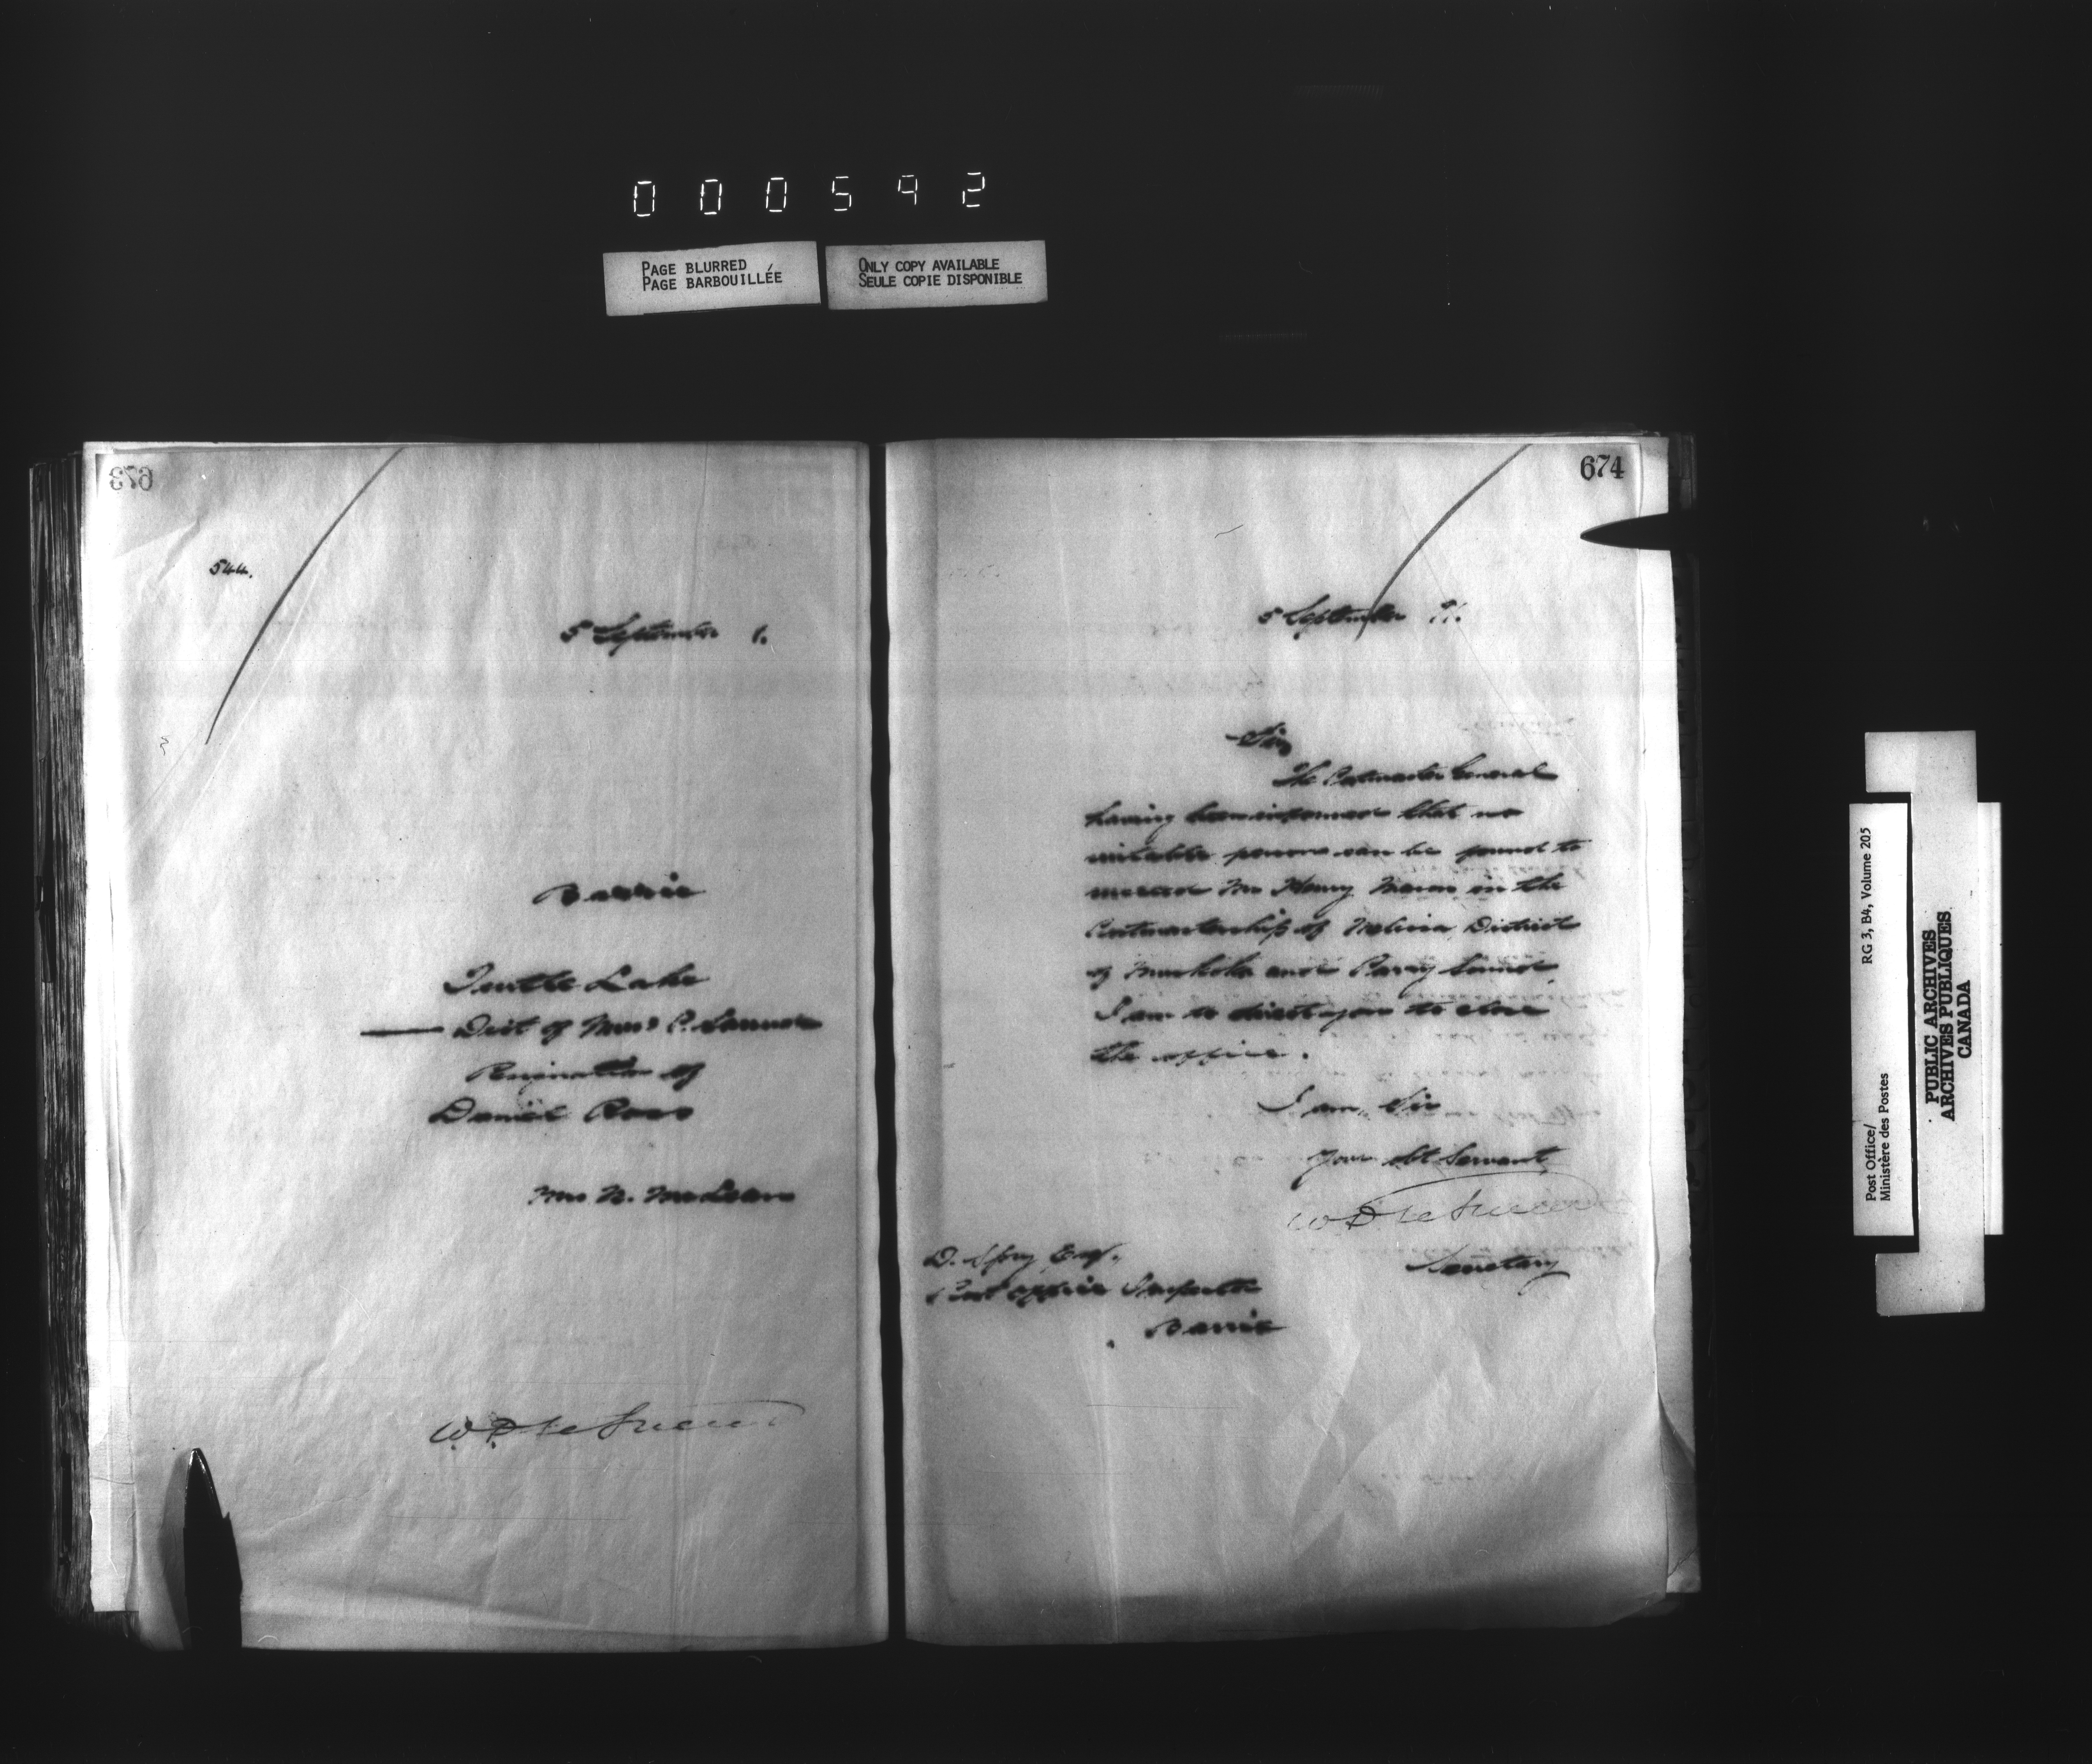 000592
PAGE BLURRED
PAGE BARBOUILLÉE
ONLY COPY AVAILABLE
SEULE COPIE DISPONIBLE
673
544.
5 September 1.
Barrie
Turtle Lake
Dist of Mus & P. Sound
Resignation of
Daniel Ross
Mr N. McLean
W. D. LeSueur
674
5 September 91.
Sir,
The Postmaster General
having been informed that no
suitable person can be found to
succeed Mr Henry Mason in the
Postmastership of Melissa, District
of Muskoka and Parry Sound
I am to direct you to close
the office.
I am, Sir
Your Obt Servant
W. D. LeSueur
Secretary
D. Spry Esq.
Post Office Inspector
Barrie
Post Office/
Ministère des Postes
RG 3, B4, Volume 205
PUBLIC ARCHIVES
ARCHIVES PUBLIQUES
CANADA